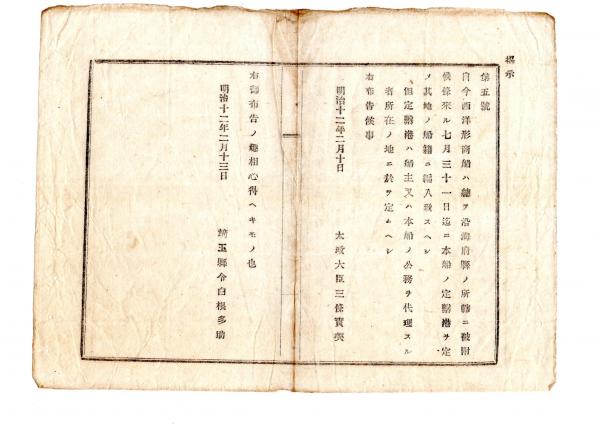 掲示
第五號
自今西洋形商船ハ總テ沿海府縣ノ所轄ニ被附
候條來ル七月三十一日迄ニ本船ノ定繋港ヲ定
メ其地ノ船籍ニ編入致スヘシ
但定繋港ハ船主又ハ本船ノ公務ヲ代理スル
者所在ノ地ニ於テ定ムヘシ
右布告候事
明治十二年二月十日
太政大臣三條實美
右御布告ノ趣相心得ヘキモノ也
明治十二年二月十三日
埼玉縣令白根多助